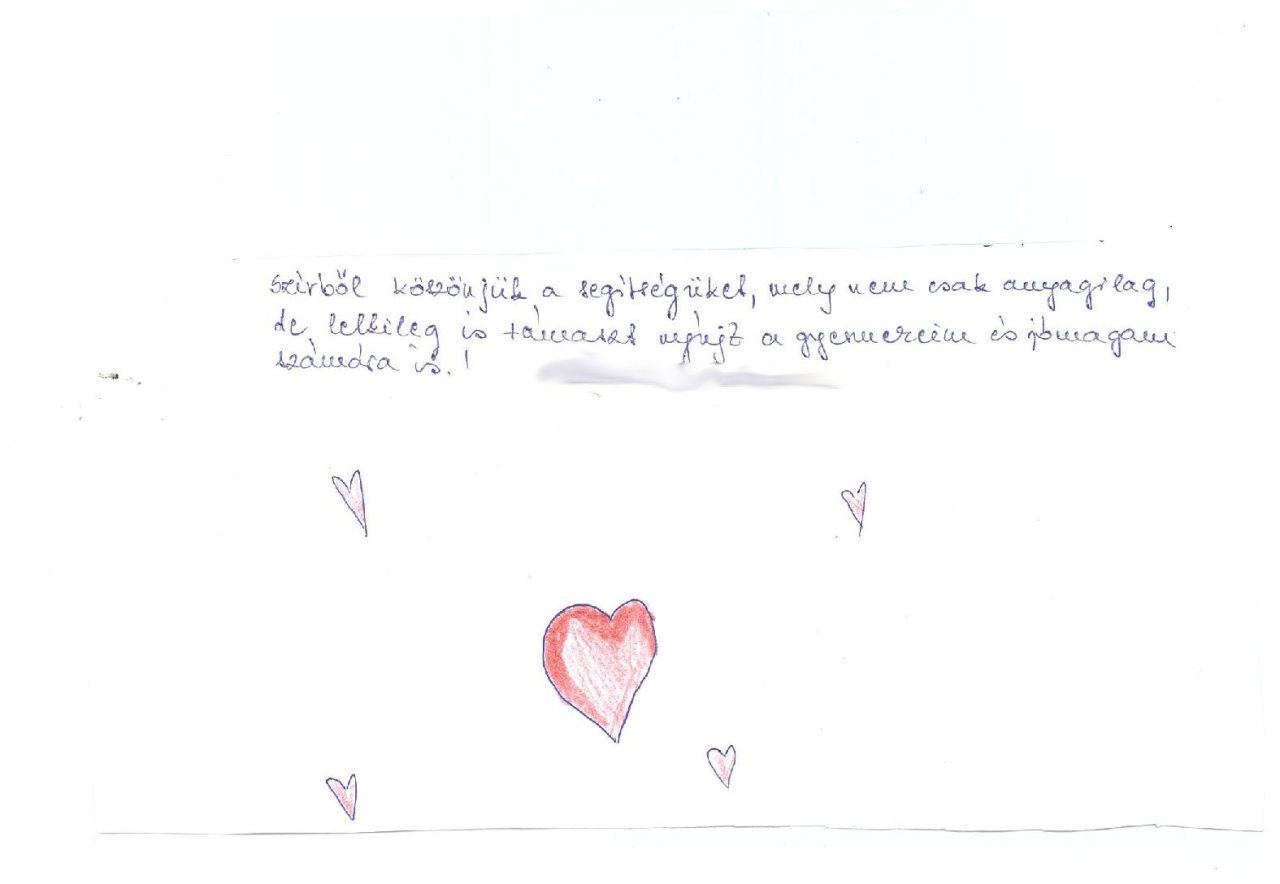 Szívből köszönjük a segítségüket, mely nem csak anyagilag,
de lelkileg is támaszt nyújt a gyermekeim és jómagam
számára is.!